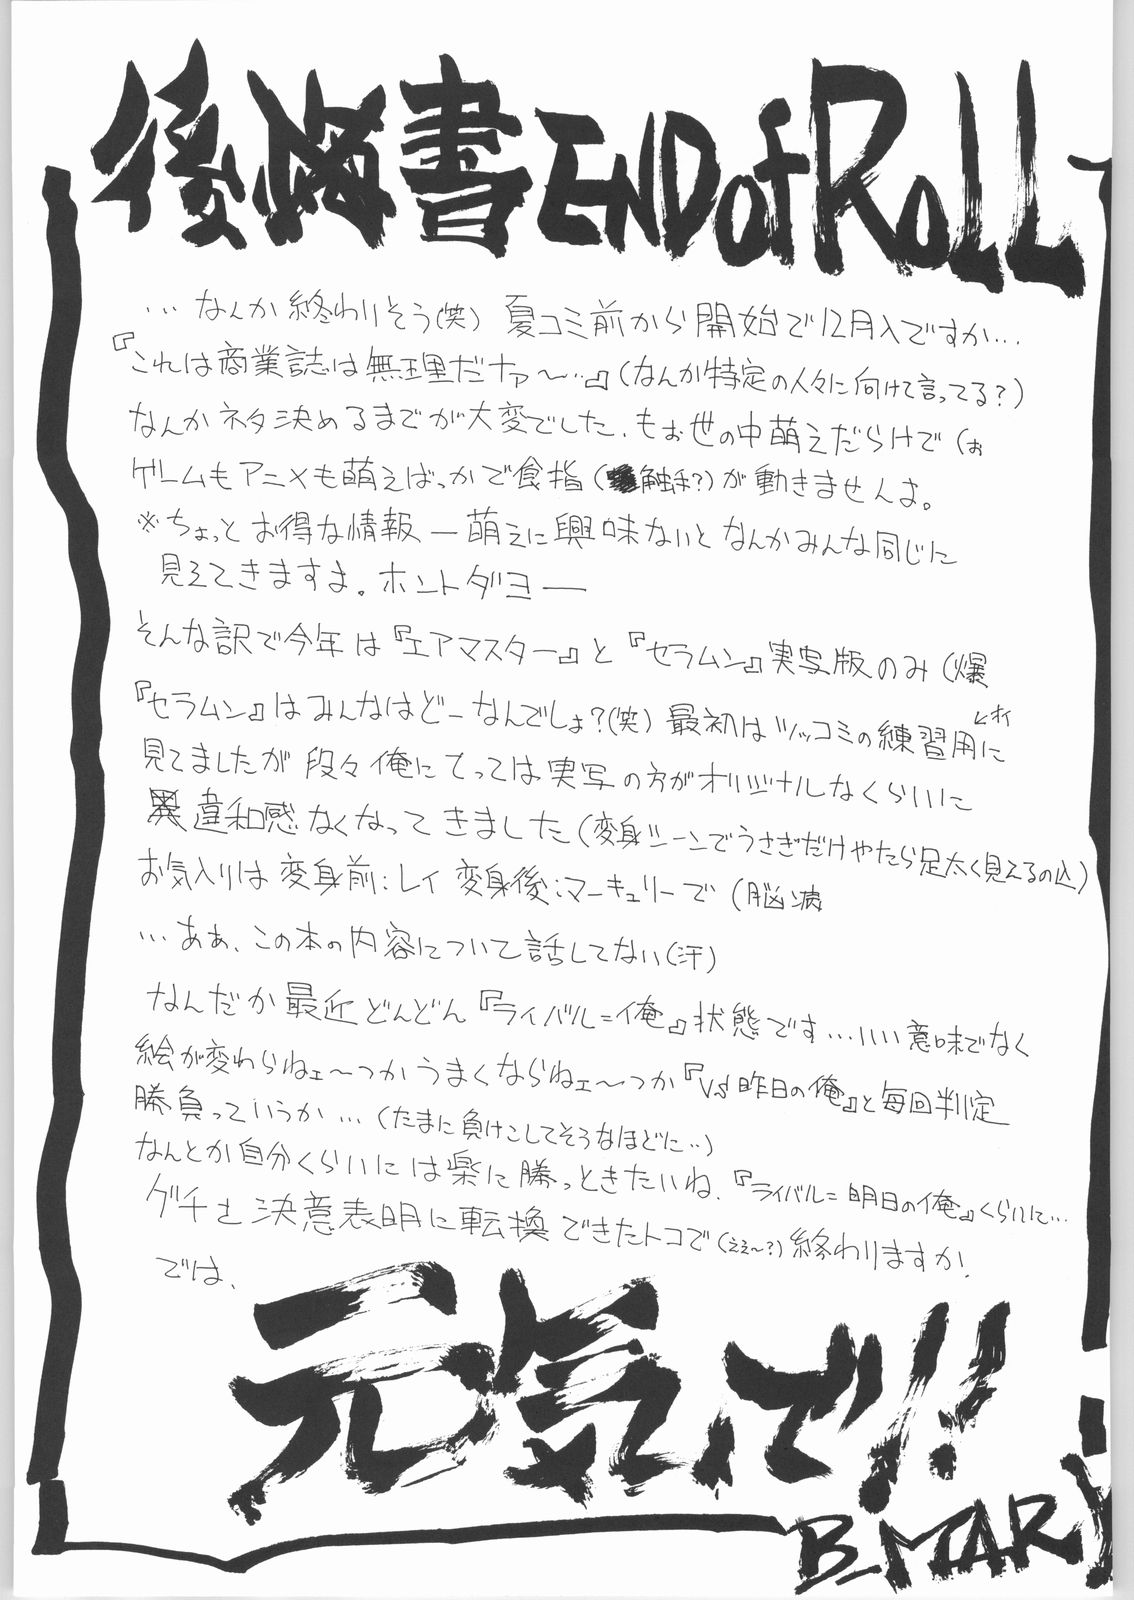 後悔書 END of Roll
…なんか終わりそう(笑) 夏コミ前から開始で12月入ですか…
『これは商業誌は無理だナァ〜…』(なんか特定の人々に向けて言ってる?)
なんかネタ決めるまでが大変でした、もぉ世の中萌えだらけで(ぉ
ゲームもアニメも萌えばっかで食指(触手?)が動きませんよ。
※ちょっとお得な情報―萌えに興味ないとなんかみんな同じに
見えてきますよ。ホントダヨー
そんな訳で今年は『エアマスター』と『セラムン』実写版のみ(爆
『セラムン』はみんなはどーなんでしょ?(笑) 最初はツッコミの練習用に
←オイ
見てましたが段々俺にとっては実写の方がオリジナルなくらいに
違和感なくなってきました(変身シーンでうさぎだけやたら足太く見えるの込)
お気入りは変身前:レイ 変身後:マーキュリーで(脳病
…ああ、この本の内容について話してない(汗)
なんだか最近どんどん『ライバル=俺』状態です…いい意味でなく
絵が変わらねェ〜つかうまくならねェ〜つか『VS昨日の俺』と毎回判定
勝負っていうか…(たまに負けこしてそうなほどに…)
なんとか自分くらいには楽に勝っときたいね、『ライバル=明日の俺』くらいに…
グチと決意表明に転換できたトコで(ええ〜?)終わりますか.
では、
元気で!!
B-MARY